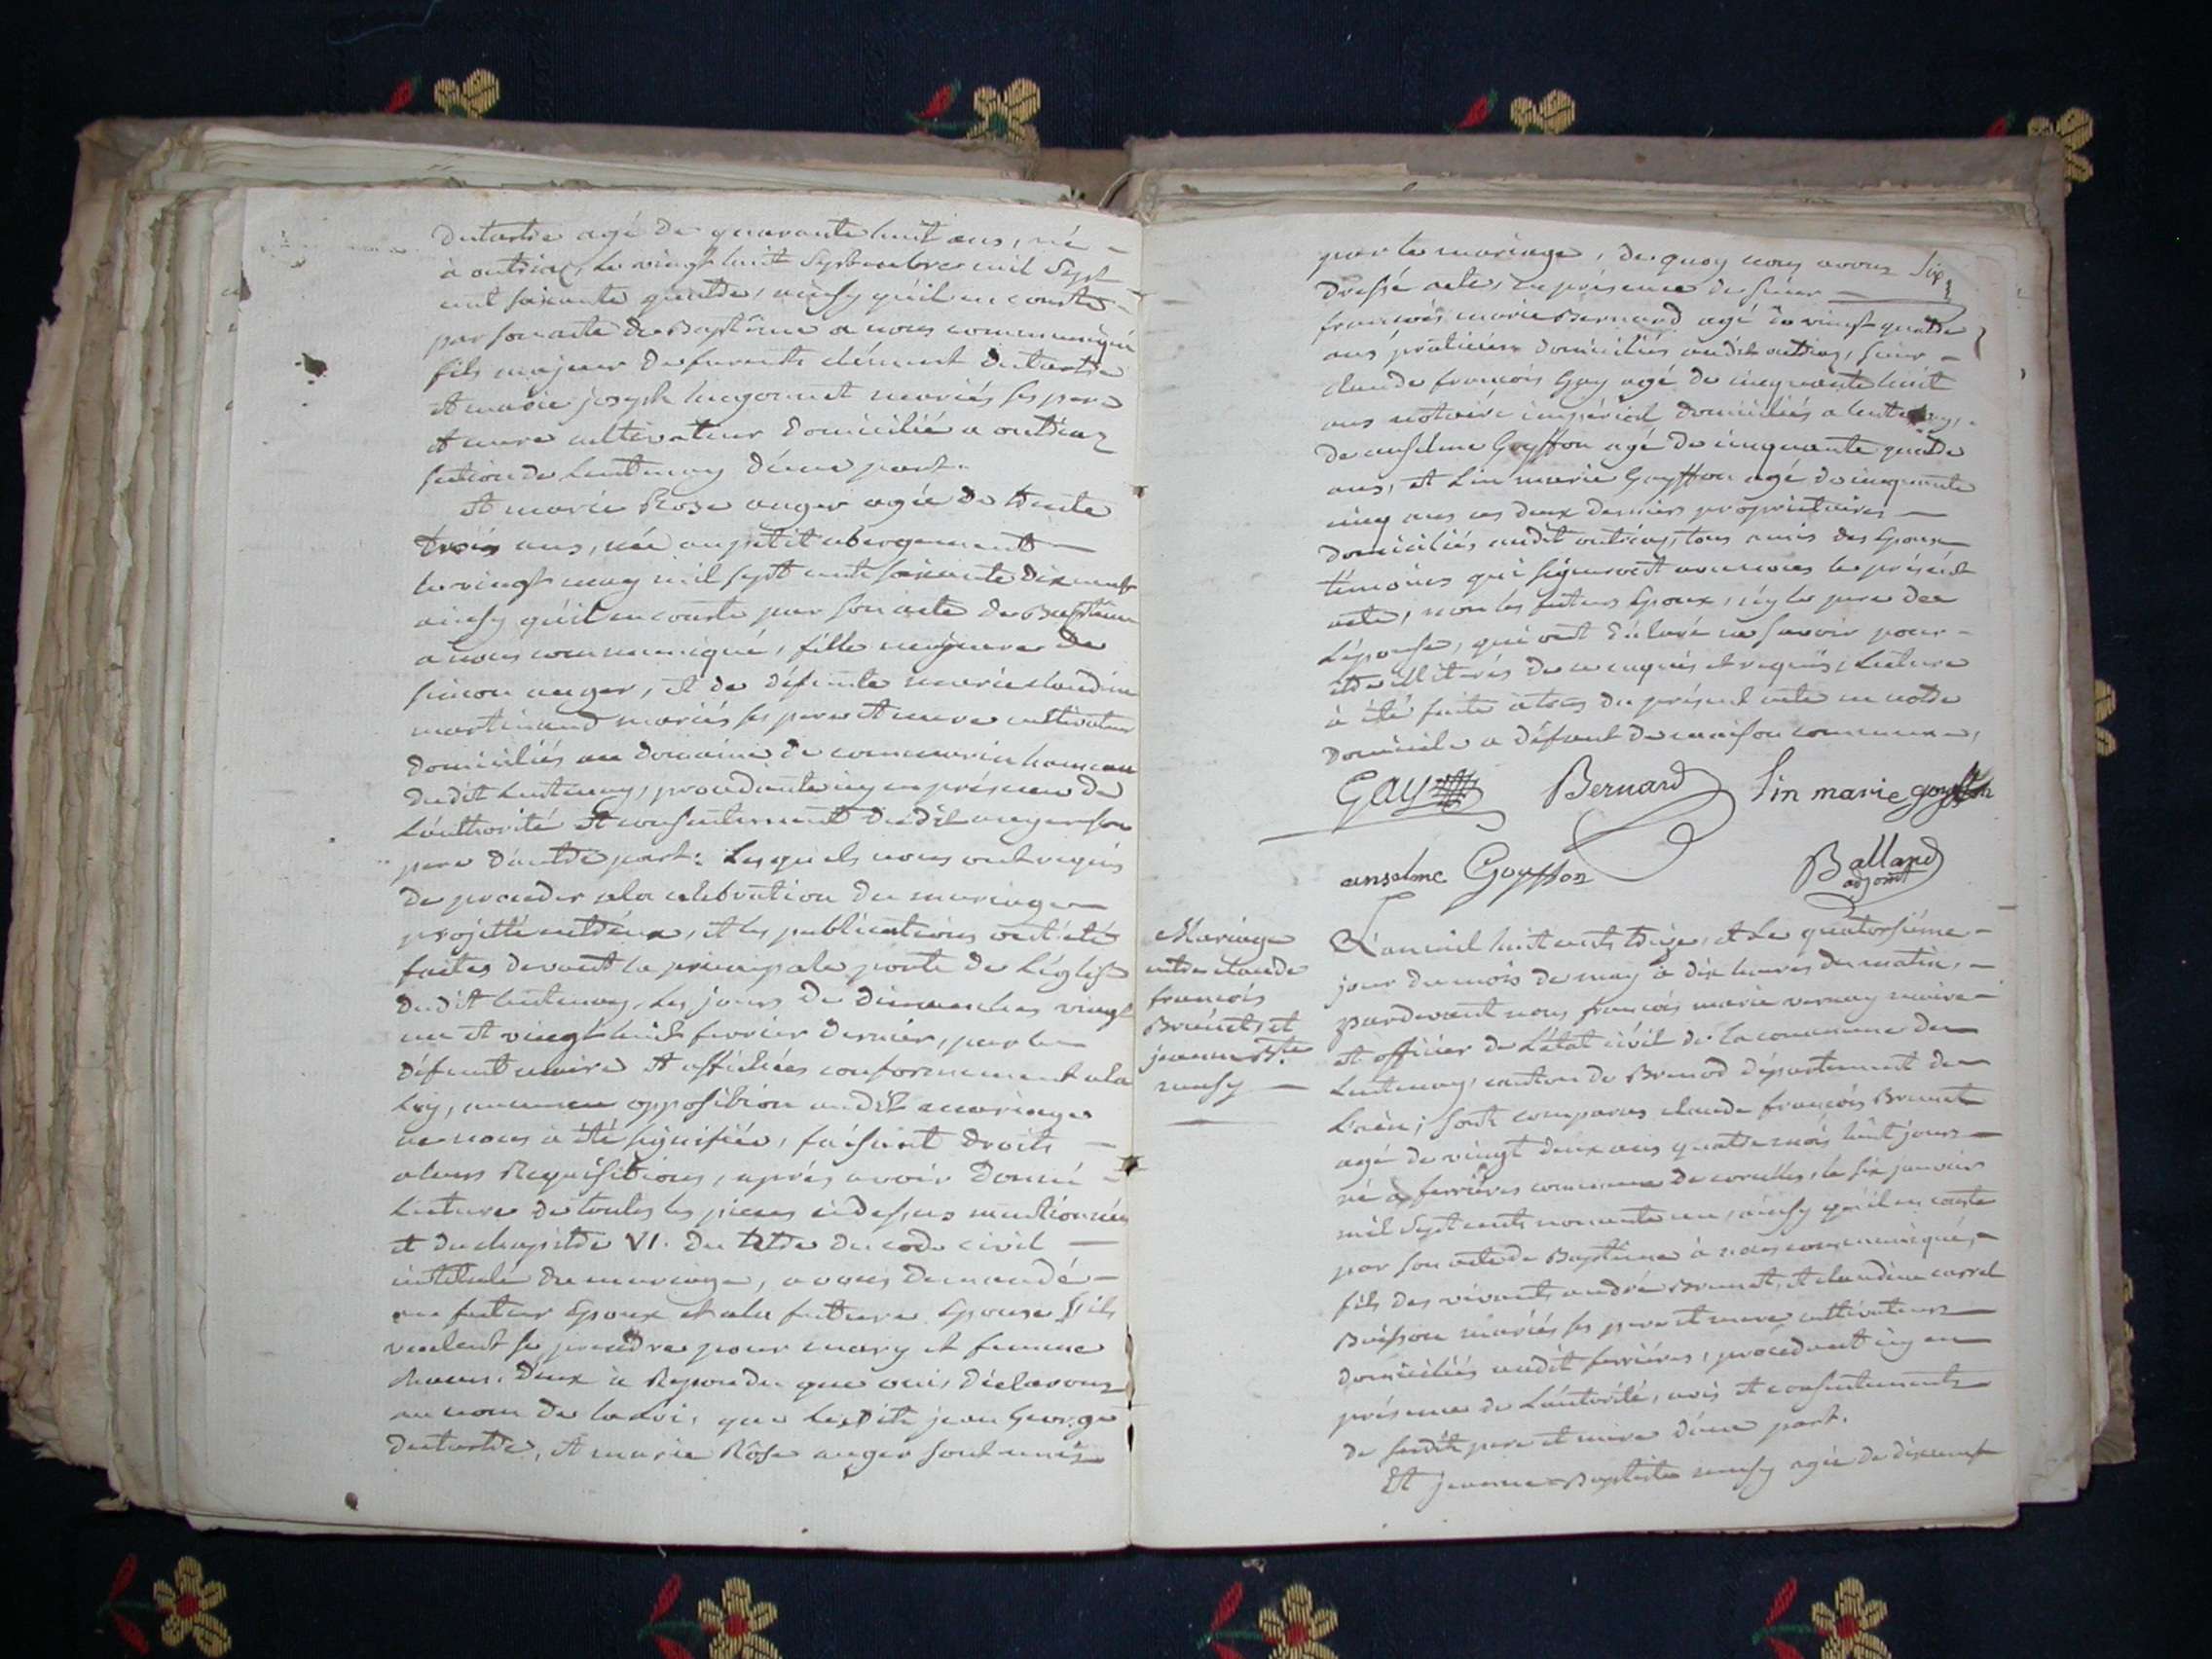 dutartre agé de quarante huit ans, né
à outriaz, le vingt huit Septembre mil Sept
cent soixante quatre, ainsy qu'il en conste
par son acte de Baptême a nous communiqué
fils majeur de furent clément dutartre
et marie joseph hugonnet mariés ses pere
et mere cultivateur domicilié a outriaz
section de Lentenay d'une part.
et marie Rose auger agée de trente
trois ans, née au petit abergement
le vingt may mil sept cent soixante dix neuf
ainsy qu'il en conste par son acte de Baptême
a nous communiqué, fille majeure de
simon auger, et de défunte marie claudine
martinand mariés ses pere et mere cultivateur
domiciliés au domaine de hameau
dudit Lentenay, procédante icy en présence de
L'authorité et consentement dudit auger son
pere d'autre part: Lesquels nous ont requis
de proceder a la celebration du mariage
projetté entr'eux, et les publications ont été
faites devant la principale porte de L'église
dudit Lentenay, les jours de dimanches vingt
un et vingt huit fevrier dernier, par le
défunt maire et affichées conformement a la
Loy, aucune opposition audit mariage
ne nous a été signifiée, faisant droits
a leurs Requisitions, aprés avoir donné
Lecture de toutes les pieces cidessus mentionnées
et du chapitre VI. du titre du code civil
intitulé du mariage, avons demandé
au futur Epoux et a la future Epouse S'ils
veulent se prendre pour mary et femme
chacun d'eux a Repondu que oui, déclarons
au nom de la Loi, que Lesdits jean George
dutartre, et marie Rose auger sont unis
par le mariage, de quoy nous avons
Six
dressé acte, en présence de sieur
francois marie Bernard agé de vingt quatre
ans praticien domiciliés audit outriaz, sieur
claude francois Gay agé de cinquante huit
ans notaire impérial domiciliés a Lentenay,
de anselme Goyffon agé de cinquante quatre
ans, et Lin marie Goyffon agé de cinquante
cinq ans ces deux derniers propriétaires
domiciliés audit outriaz, tous amis des Epoux
témoins qui signeront avec nous le présent
acte, non les futurs Epoux, n'y le pere de
L'épouse, qui ont déclaré ne savoir pour
être illiterés de ce enquis et requis, Lecture
à été faite a tous du présent acte en notre
domicile a défaut de maison commune,
GAY Bernard Lin marie goyffon
anselme Goyffon Balland
adjoint
Mariage
entre claude
francois
Brunet et
jeanne Bte
L'an mil huit cents treize, et Le quatorsième
jour du mois de may à dix heures du matin,
pardevant nous francois marie vernay maire
et officier de L'état civil de la commune de
Lentenay, canton de Brenod département de
L'ain; sont comparus claude francois Brunet
agé de vingt deux ans quatre mois huit jours
né à ferrières commune de corcelles, le six janvier
mil Sept cents nonante un, ainsy qu'il en conste
par son acte de Baptême à nous communiqué,
fils des vivants andré Brunet, et claudine carrel
Buisson mariés ses pere et mere cultivateurs
domiciliés audit ferrières, procédant icy en
présence de L'autorité, avis et consentements
de sesdits pere et mere d'une part.
Et jeanne Baptiste agée de dixneuf